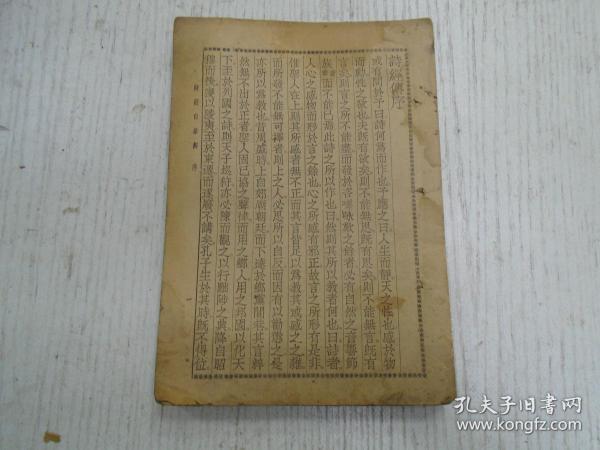 詩經傳序
或有問於予曰詩何爲而作也予應之曰人生而靜天之性也感於物
而動性之欲也夫旣有欲矣則不能無思旣有思矣則不能無言旣有
言矣則言之所不能盡而發於咨嗟咏歎之餘者必有自然之音響節
族而不能已焉此詩之所以作也曰然則其所以教者何也曰詩者
人心之感物而形於言之餘也心之所感有邪正故言之所形有是非
惟聖人在上則其所感者無不正而其言皆足以爲教其或感之之雜
而所發不能無可擇者則上之人必思所以自反而因有以勸懲之是
亦所以爲教也昔周盛時上自郊廟朝廷而下達於鄉黨閭巷其言粹
然無不出於正者聖人固已協之聲律而用之鄉人用之邦國以化天
下至於列國之詩則天子巡狩亦必陳而觀之以行黜陟之典降自昭
穆而後寖以陵夷至於東遷而遂廢不講矣孔子生於其時旣不得位
孔夫子旧书网
www.kongfz.com